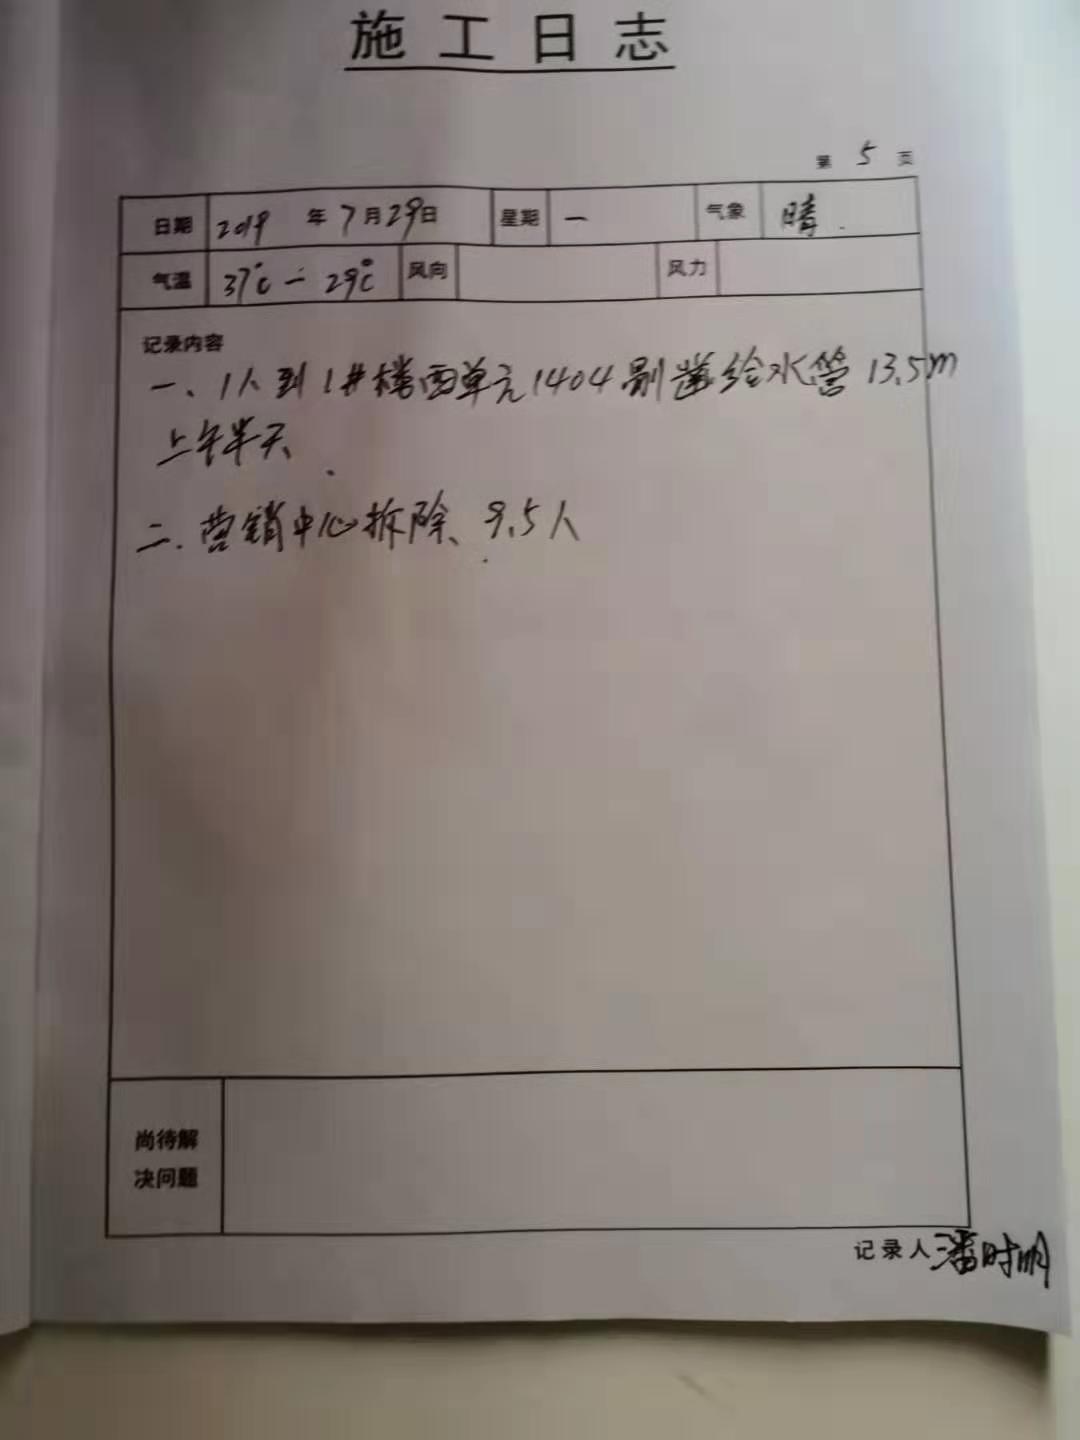 施工日志
第 5 页
日期 2019 年 7 月 29 日 星期 一 气象 晴.
气温 37℃ — 29℃ 风向 风力
记录内容
一、1人到1#楼西单元1404剔凿给水管13.5m
上午半天.
二.营销中心拆除、9.5人
尚待解
决问题
记录人 潘时明